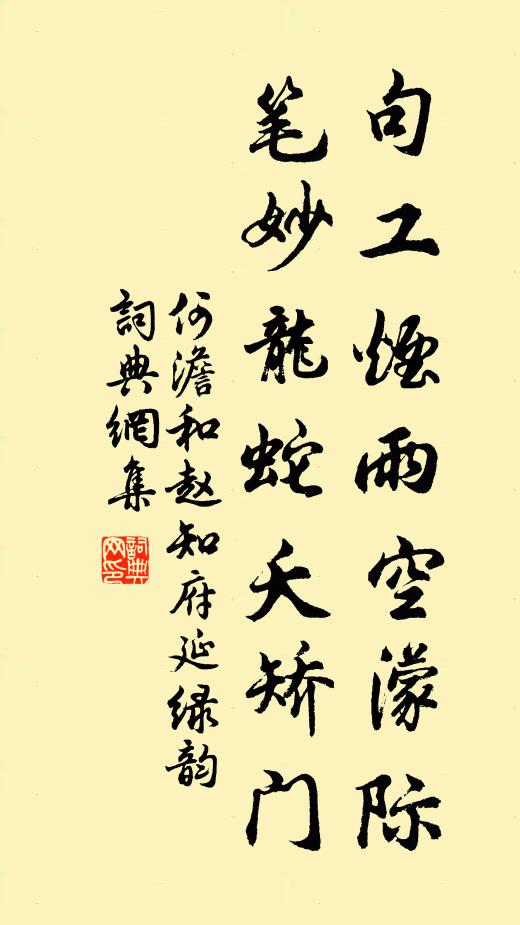 句工煙雨空濛际
笔妙龍蛇夭矫门
何澹和赵知府延绿韵
詞典網集
詞典网印